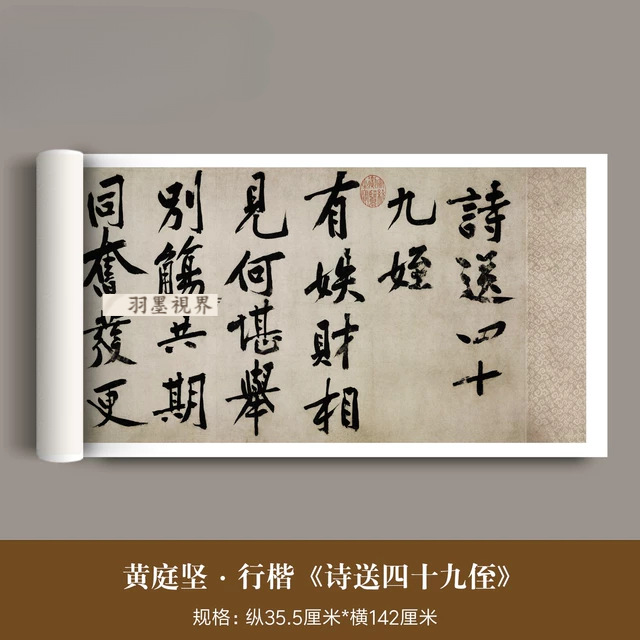 詩送四十
九姪
有財相
見何堪舉
別觴共期
同奮發更
羽墨視界
黄庭坚·行楷《诗送四十九侄》
规格：纵35.5厘米*横142厘米